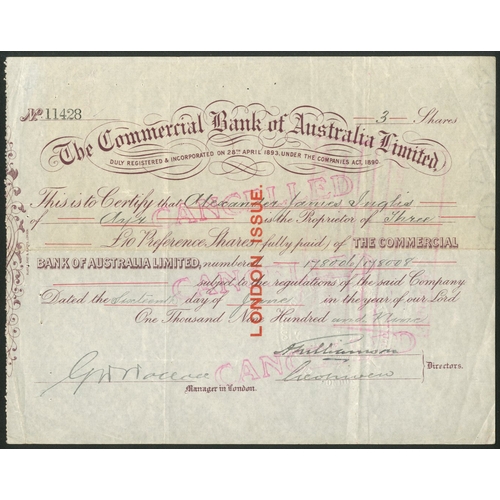 No 11428
3 Shares
The Commercial Bank of Australia Limited.
DULY REGISTERED & INCORPORATED ON 28TH APRIL 1893, UNDER THE COMPANIES ACT, 1890.
This is to Certify that Alexander James Inglis
of Ayr is the Proprietor of Three
£10 Preference Shares (fully paid) of THE COMMERCIAL
BANK OF AUSTRALIA LIMITED, numbered 178006/178008
subject to the regulations of the said Company.
Dated the Sixteenth day of June in the year of our Lord
One Thousand Nine Hundred and Nine
Directors.
Manager in London.
LONDON ISSUE.
CANCELLED
CANCELLED
CANCELLED